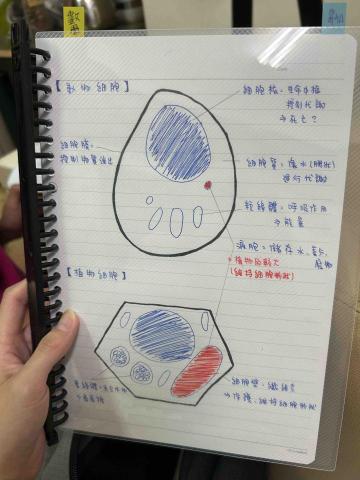 數學
【動物細胞】
細胞核：生命中樞
控制代謝
→死亡？
細胞膜：
控制物質進出
細胞質：膠水(膠狀)
進行代謝
粒線體：呼吸作用
→能量
液胞：儲存水、養分、
廢物
*植物反較大
(維持細胞形狀)
【植物細胞】
葉綠體：光合作用
→葡萄糖
細胞壁：纖維素
→保護、維持細胞形狀